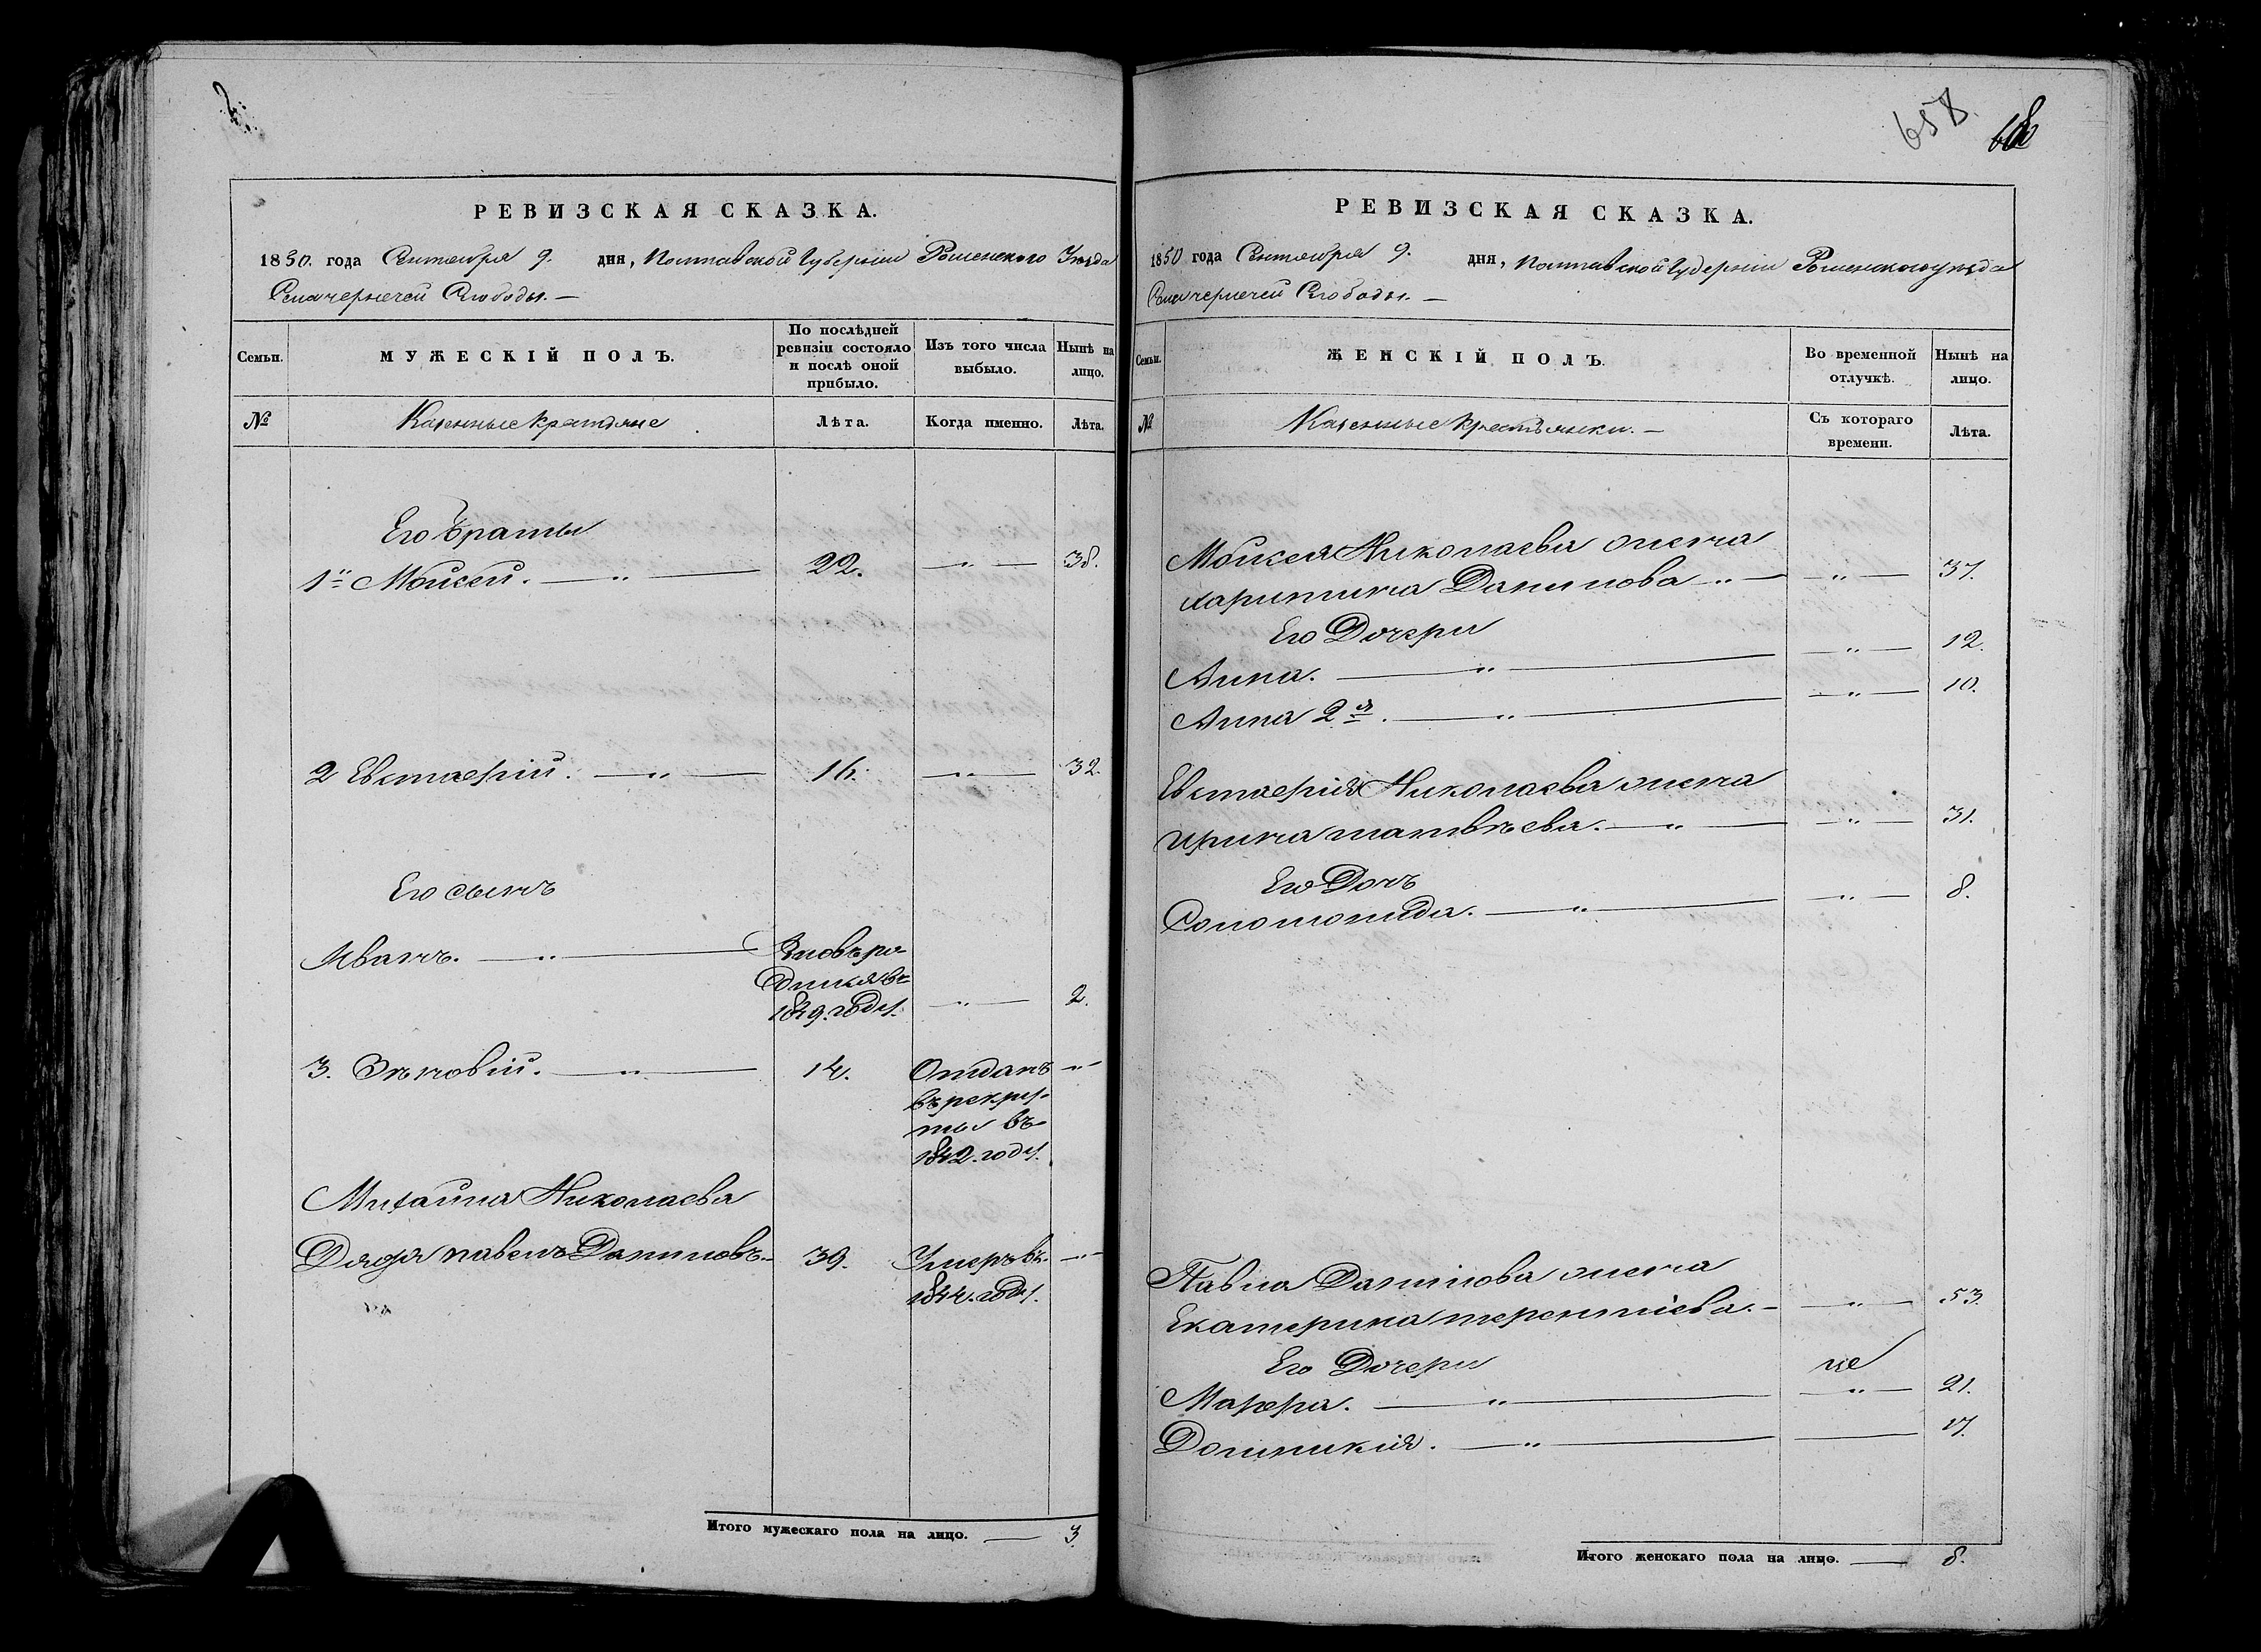 РЕВИЗСКАЯ СКАЗКА.
1850. года Сентября 9. дня, Полтавской Губернии Роменского Уезда
Села чернечей Слободы. —
Семьи. МУЖЕСКІЙ ПОЛЪ. По послѣдней ревизіи состояло и послѣ оной прибыло. Изъ того числа выбыло. Нынѣ на лицо.
№ Казенные крестьяне Лѣта. Когда именно. Лѣта.
Его Браты
1й Мойсей. — " — 22. — " — 38.
2 Евстаѳiй. — " — 16. — " — 32.
Его сынъ
Иванъ. — " — Вновь ро-
дился въ
1849. году. — " — 2.
3. Зѣновiй. — " — 14. Отданъ — " —
въ рекру-
ты въ
1842. году.
Михайла Николаева
Дядя павелъ Даниловъ — 39. Умеръ въ — " —
1844. году.
Итого мужескаго пола на лицо. — 3.
658.
РЕВИЗСКАЯ СКАЗКА.
1850 года Сентября 9. дня, Полтавской Губернии Роменского уезда
Села чернечей Слободы. —
Семьи. ЖЕНСКІЙ ПОЛЪ. Во временной отлучкѣ. Нынѣ на лицо.
№ Казенные крестьянки. — Съ котораго времени. Лѣта.
Мойсея Николаева жена
харитина Данилова — " — — " — 37.
Его Дочери
Анна. — " — — " — 12.
Анна 2я. — " — — " — 10.
Евстаѳiя Николаева жена
ирина матвѣева. — " — — " — 31.
Его Дочь
Соломонида. — " — — " — 8.
Павла Данилова жена
Екатерина терентiева. — — " — 53.
Его Дочери
Марѳа. — " — — " — 21.
Домникiя. — " — — 17.
Итого женскаго пола на лицо. — 8.